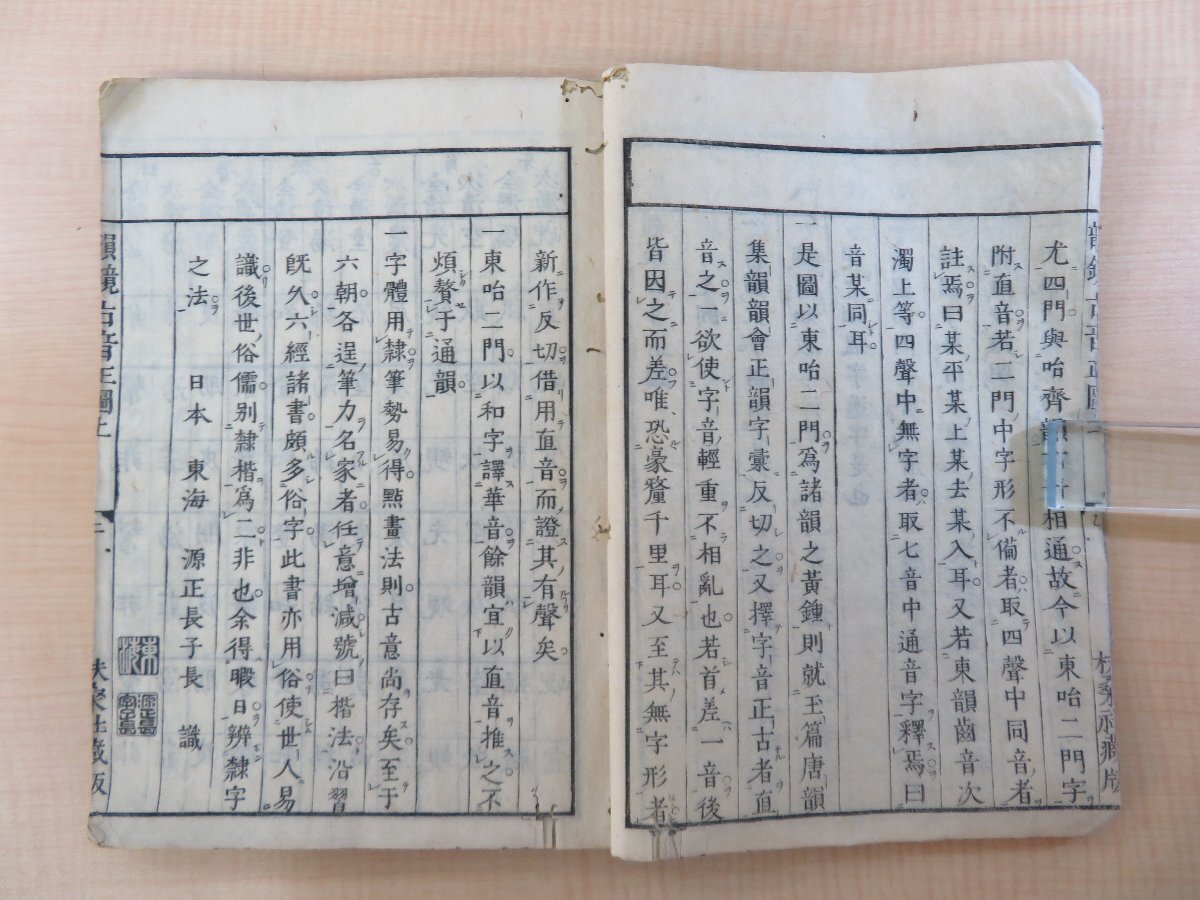 尤四門與咍齊相通故今以東咍二門字
附直音若二門中字形不備者取四聲中同音者
註焉曰某平某上某去某入耳又若東韻齒音次
濁上等四聲中無字者取七音中通音字釋焉曰
音某同耳
一是圖以東咍二門爲諸韻之黃鍾則就玉篇唐韻
集韻韻會正韻字彙反切之又擇字音正古者直
音之一欲使字音輕重不相亂也若首差一音後
皆因之而差唯恐豪釐千里耳又至其無字形者
新作反切借用直音而證其有聲矣
一東咍二門以和字譯華音餘韻宜以直音推之不
煩贅于通韻
一字體用隷筆勢易得點畫法則古意尚存矣至于
六朝各逞筆力名家者任意增減號曰楷法沿習
既久六經諸書頗多俗字此書亦用俗使世人易
識後世俗儒別隷楷爲二非也余得暇日辨隷字
之法 日本 東海 源正長子長 識
韻鏡古音正圖上
扶桑社藏版